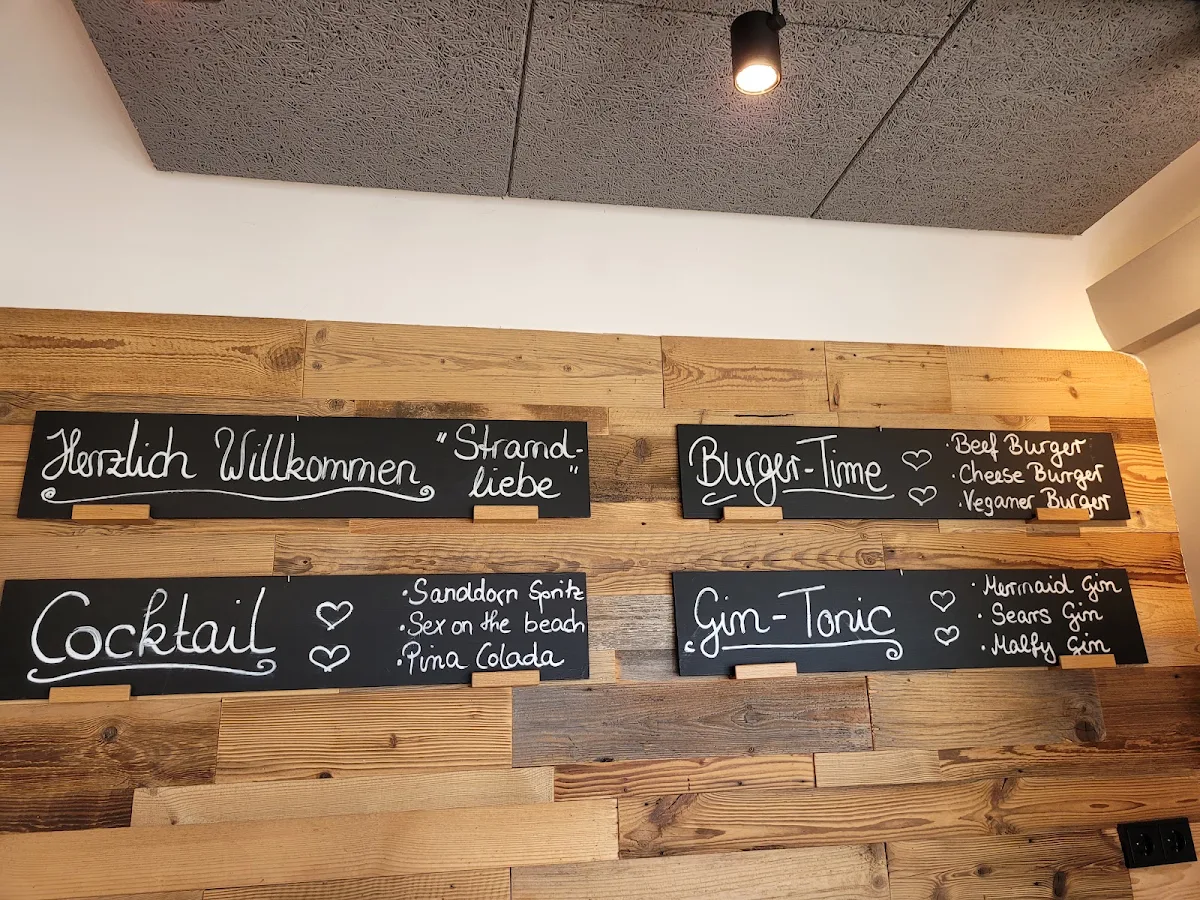 Herzlich Willkommen
"Strand-
liebe"
Burger-Time
·Beef Burger
·Cheese Burger
·Veganer Burger
Cocktail
·Sanddorn Spritz
·Sex on the beach
·Pina Colada
Gin-Tonic
·Mermaid Gin
·Sears Gin
·Malfy Gin